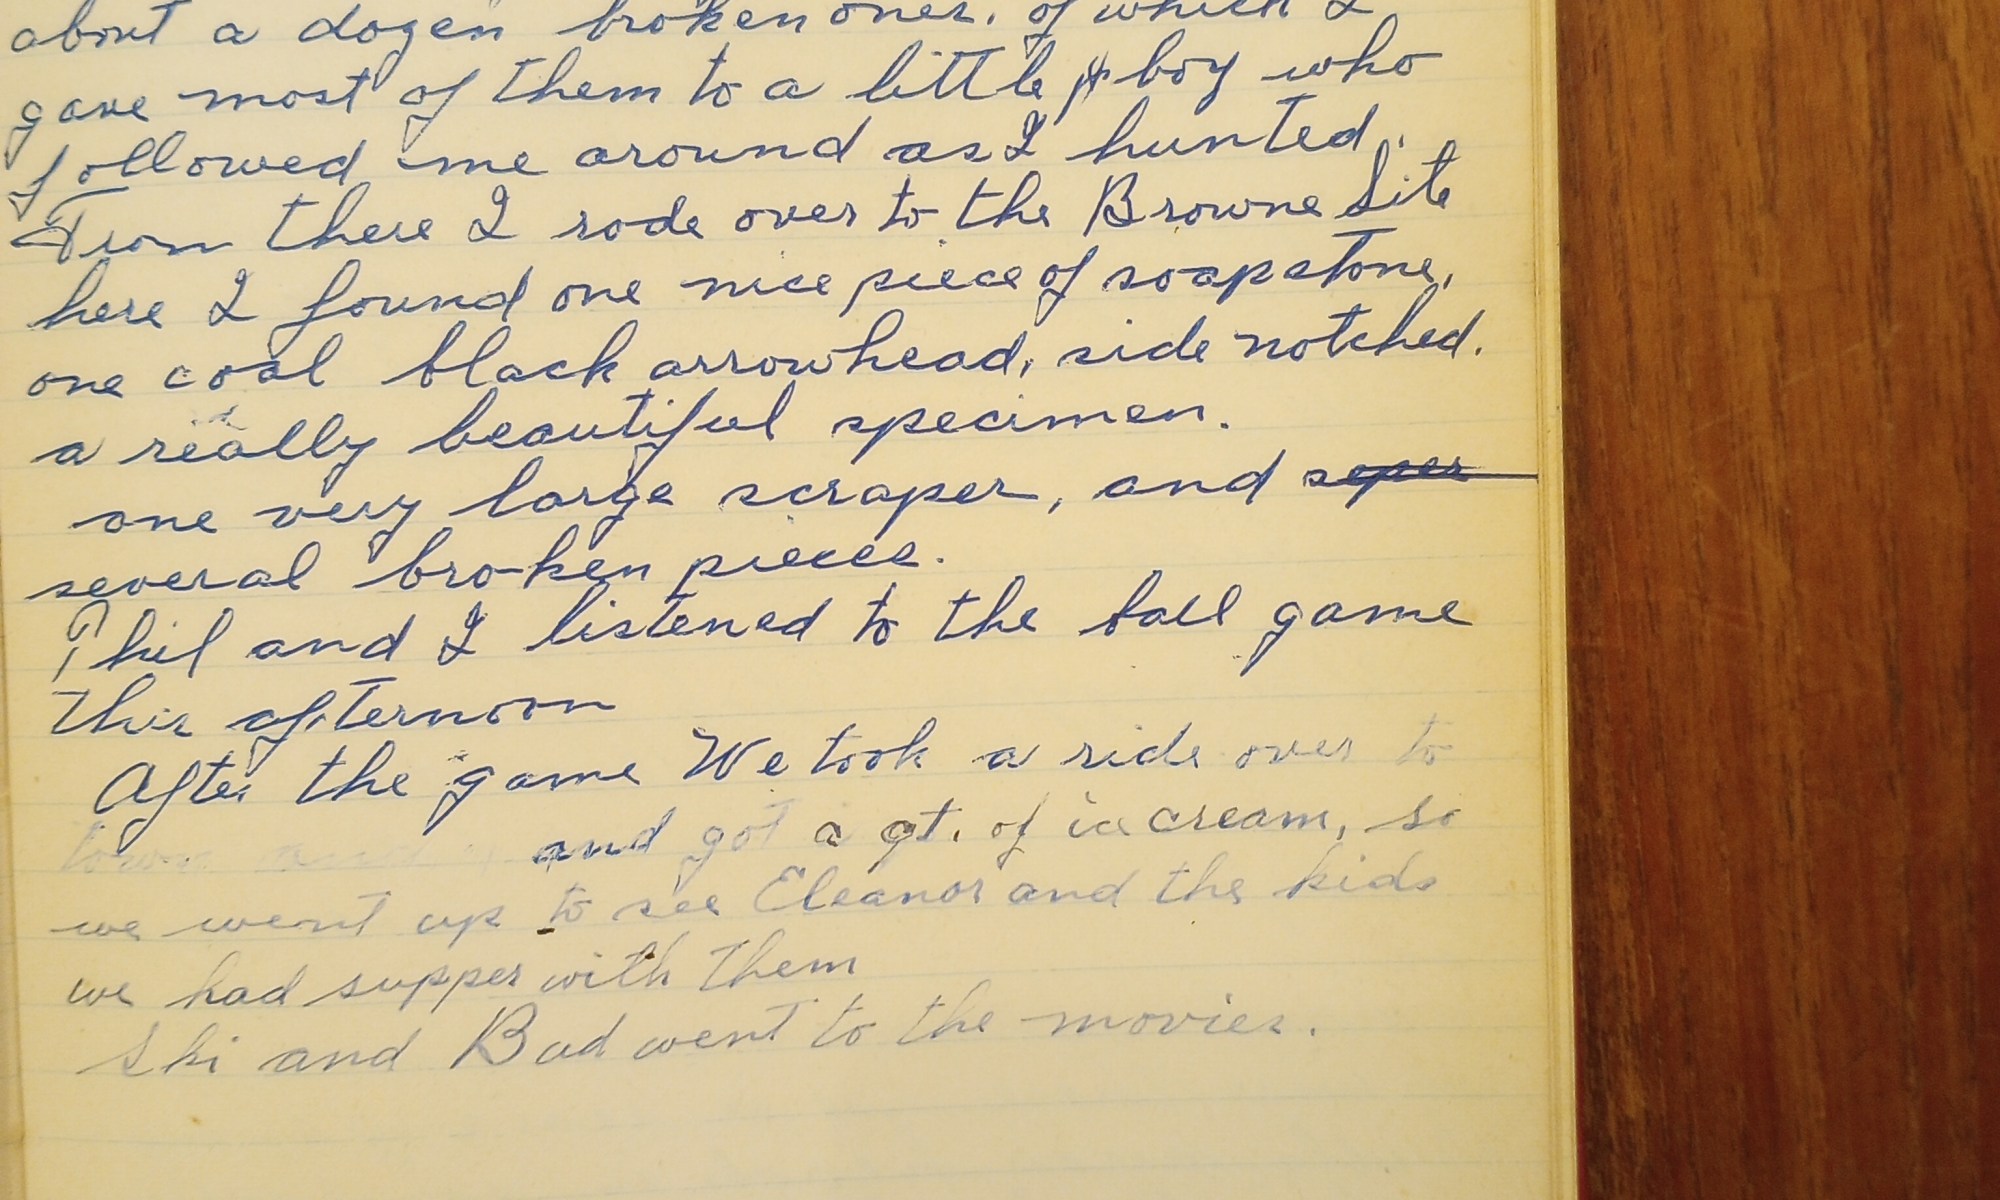 about a dozen broken ones. of which I
gave most of them to a little boy who
followed me around as I hunted.
From there I rode over to the Browne Site
here I found one nice piece of soapstone,
one coal black arrowhead, side notched.
a really beautiful specimen.
one very large scraper, and
several broken pieces.
Phil and I listened to the ball game
this afternoon
After the game We took a ride over to
town and and got a qt. of ice cream, so
we went up to see Eleanor and the kids
we had supper with them
Ski and Bud went to the movies.